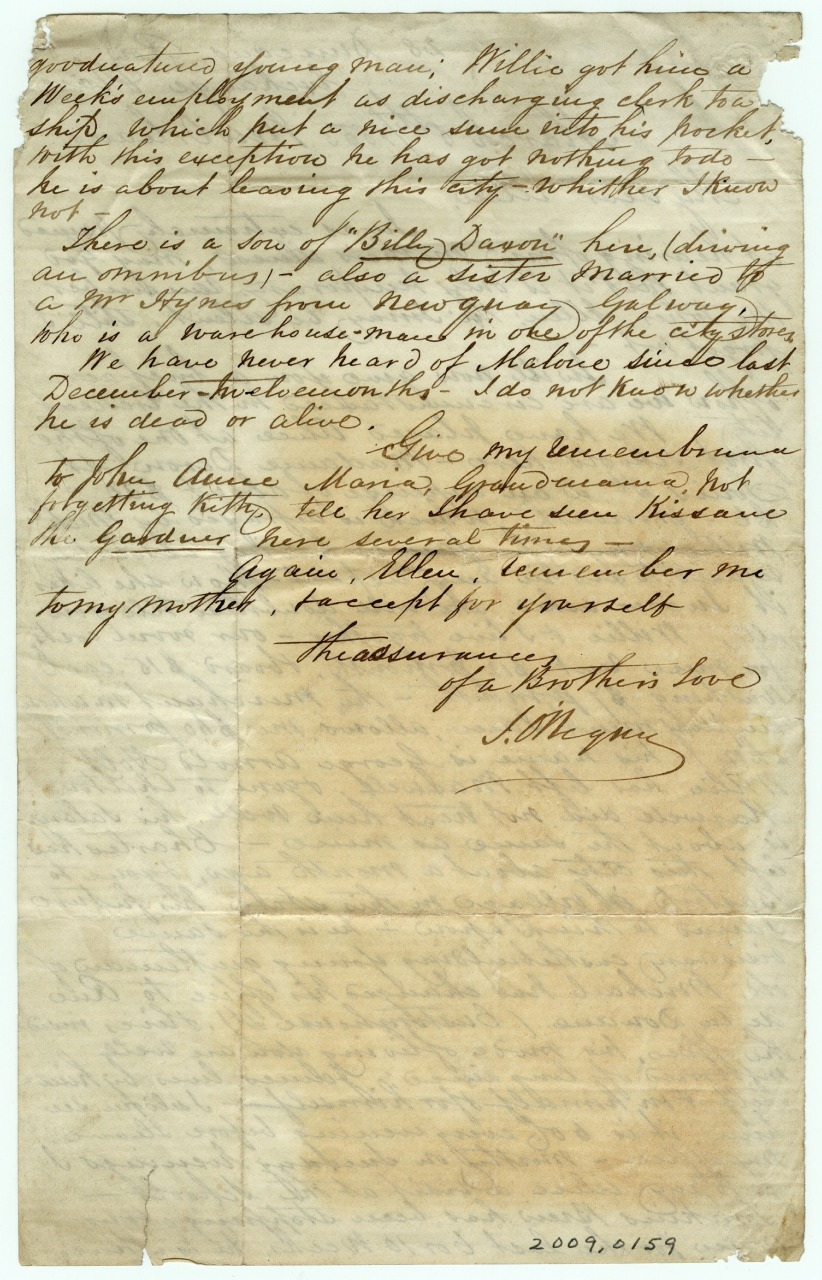 goodnatured young man; Willie got him a
Week's employment as discharging clerk to a
ship which put a nice sum into his pocket,
with this exception he has got nothing to do —
he is about leaving this city – whither I know
not –
There is a son of "Billy Daxon" here, (driving
an omnibus) – also a sister Married to
a Mr Hynes from Newquay, Galway,
who is a warehouse-man in one of the city stores
We have never heard of Malone since last
December-twelvemonths – I do not know whether
he is dead or alive.
Give my remembrance
to John Anne Maria, Grandmama, not
forgetting Kitty, tell her I have seen Kissane
the Gardner here several times —
Again, Ellen, remember me
to my mother, & accept for yourself
the assurances
of a Brother's love
J.
2009.0159